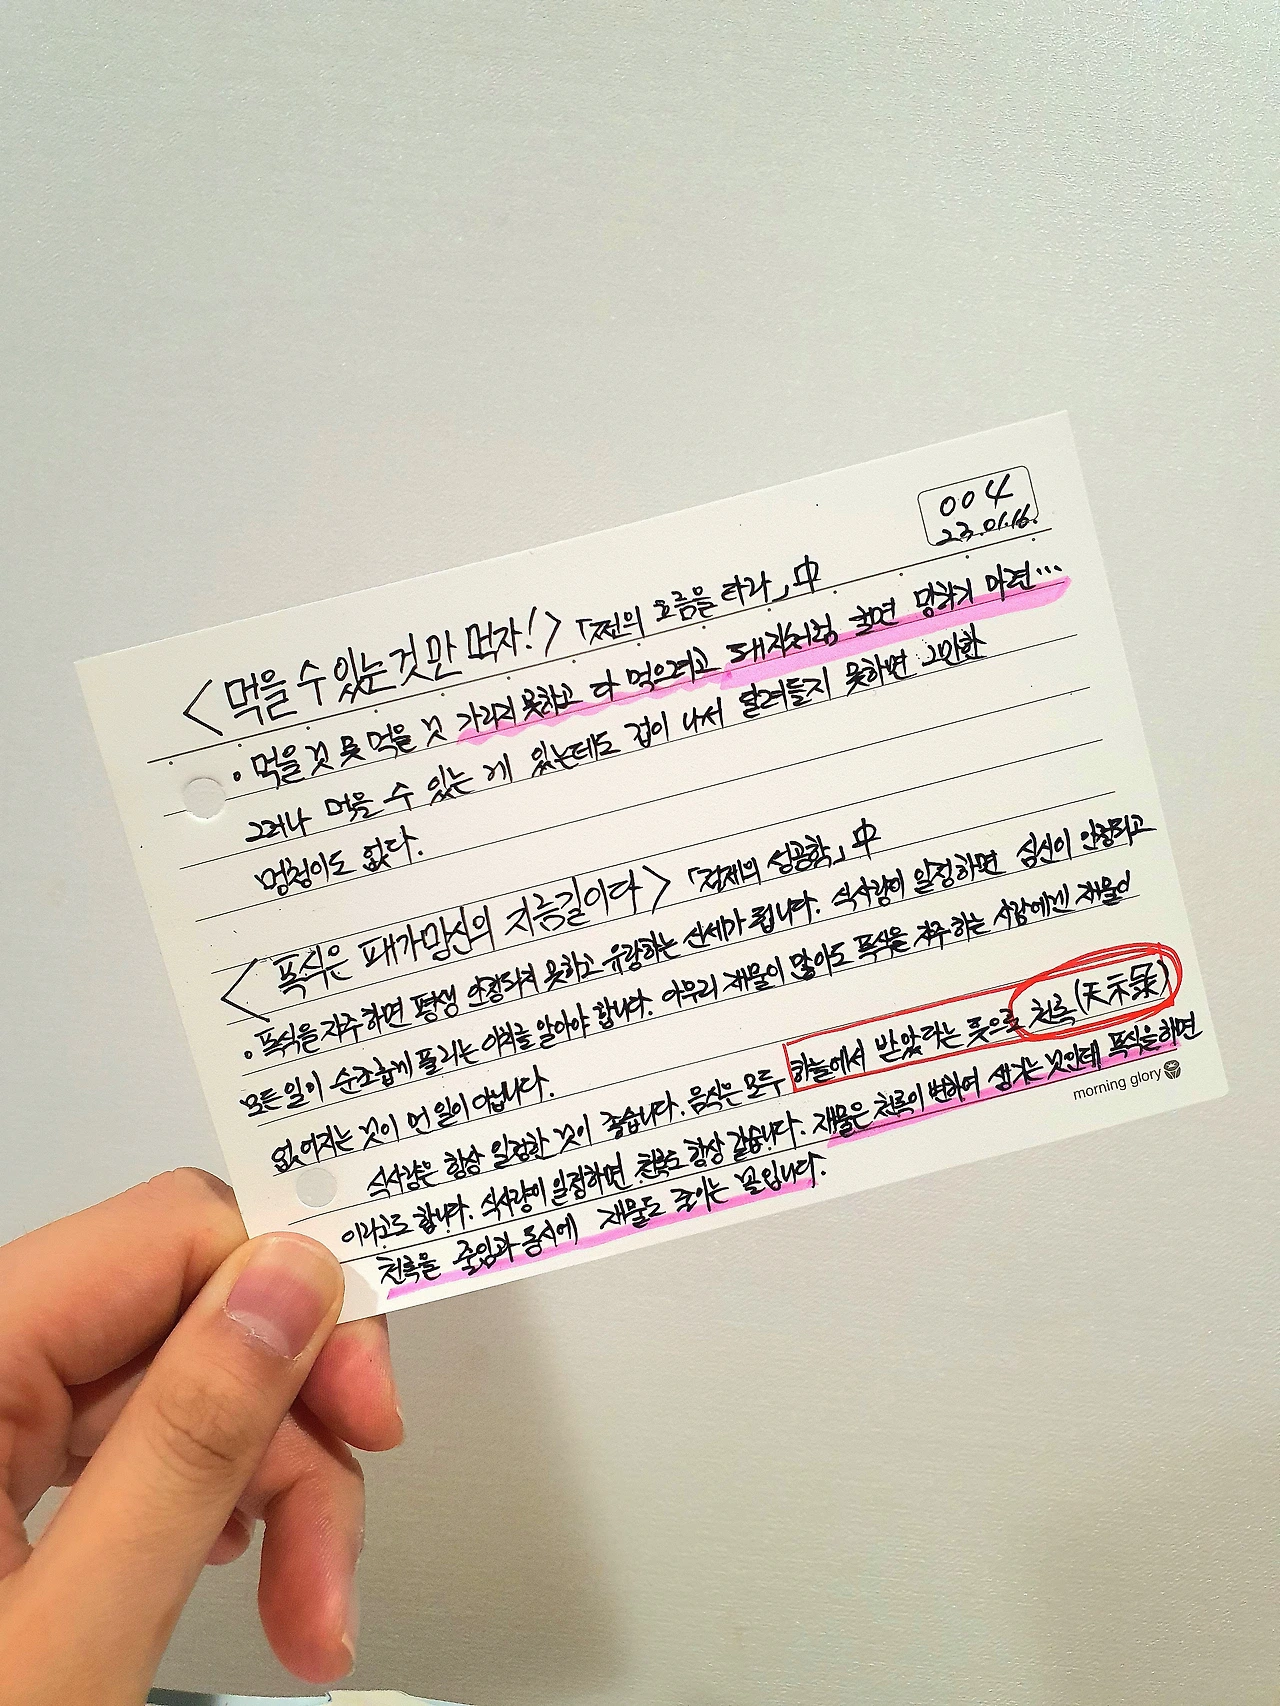 004
23.01.16.
<먹을 수 있는 것만 먹자!> 「쩐의 흐름을 타라」中
• 먹을 것 못 먹을 것 가리지 못하고 다 먹으려고 돼지처럼 굴면 망하기 마련…
그러나 먹을 수 있는 게 있는데도 겁이 나서 달려들지 못하면 그만한
멍청이도 없다.
<폭식은 패가망신의 지름길이다> 「절제의 성공학」中
• 폭식을 자주하면 평생 안정되지 못하고 유랑하는 신세가 됩니다. 식사량이 일정하면 심신이 안정되고
모든 일이 순조롭게 풀리는 이치를 알아야 합니다. 아무리 재물이 많아도 폭식을 자주 하는 사람에겐 재물이
없어지는 것이 먼 일이 아닙니다.
식사량은 항상 일정한 것이 좋습니다. 음식은 모두 하늘에서 받았다는 뜻으로 천록(天示录)
이라고도 합니다. 식사량이 일정하면 천록도 항상 같습니다. 재물은 천록이 변하여 생기는 것인데 폭식을 하면
천록을 줄임과 동시에 재물도 줄이는 꼴입니다.
morning glory